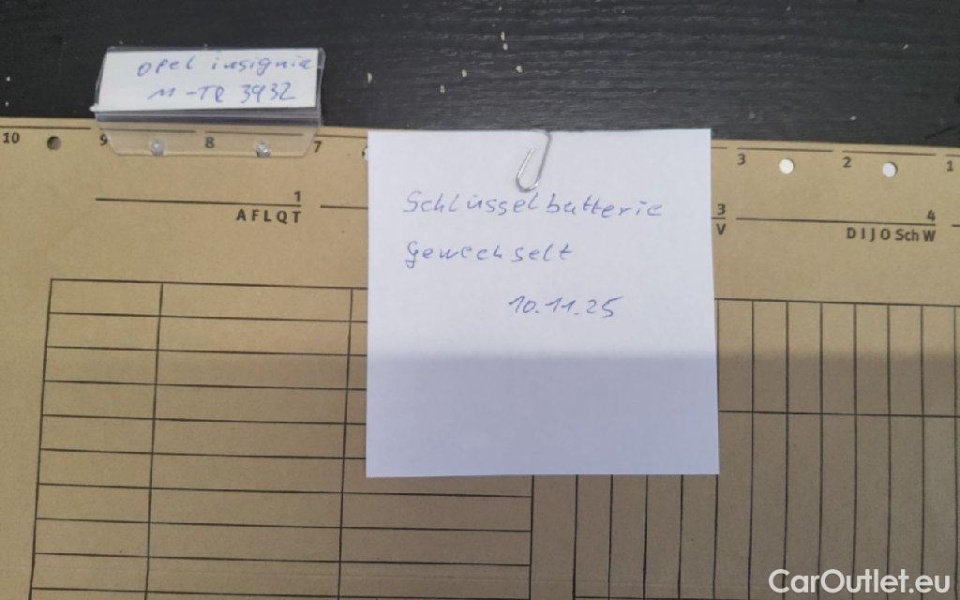 Opel insignia
M-TR 3932
10
9
8
7
3
2
1
1
AFLQT
3
V
4
DIJO Sch W
Schlüsselbatterie
Gewechselt
10.11.25
CarOutlet.eu